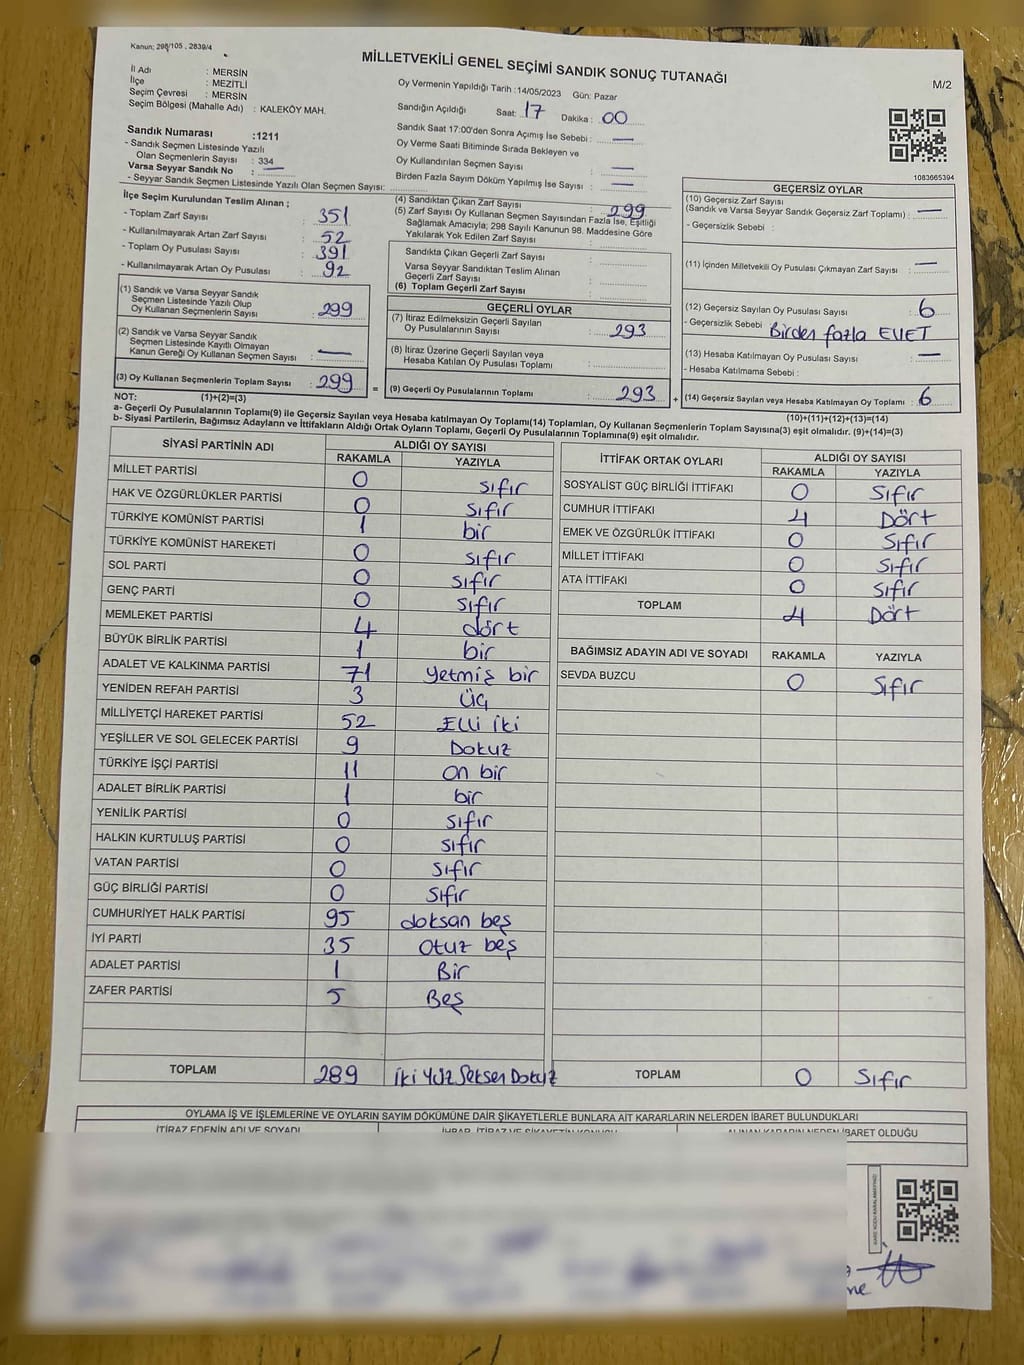 Kanun: 298/105 , 2839/4
MİLLETVEKİLİ GENEL SEÇİMİ SANDIK SONUÇ TUTANAĞI
M/2
İl Adı : MERSİN
İlçe : MEZİTLİ
Seçim Çevresi : MERSİN
Seçim Bölgesi (Mahalle Adı) : KALEKÖY MAH.
Oy Vermenin Yapıldığı Tarih :14/05/2023 Gün: Pazar
Sandığın Açıldığı Saat: 17 Dakika : 00
Sandık Saat 17:00'den Sonra Açımış İse Sebebi : —
Oy Verme Saati Bitiminde Sırada Bekleyen ve
Oy Kullandırılan Seçmen Sayısı : —
Birden Fazla Sayım Döküm Yapılmış İse Sayısı : —
Sandık Numarası :1211
- Sandık Seçmen Listesinde Yazılı
Olan Seçmenlerin Sayısı : 334
Varsa Seyyar Sandık No : —
- Seyyar Sandık Seçmen Listesinde Yazılı Olan Seçmen Sayısı:
1083665394
İlçe Seçim Kurulundan Teslim Alınan ;
- Toplam Zarf Sayısı : 351
- Kullanılmayarak Artan Zarf Sayısı : 52
- Toplam Oy Pusulası Sayısı : 391
- Kullanılmayarak Artan Oy Pusulası : 92
(1) Sandık ve Varsa Seyyar Sandık
Seçmen Listesinde Yazılı Olup
Oy Kullanan Seçmenlerin Sayısı : 299
(2) Sandık ve Varsa Seyyar Sandık
Seçmen Listesinde Kayıtlı Olmayan
Kanun Gereği Oy Kullanan Seçmen Sayısı : —
(3) Oy Kullanan Seçmenlerin Toplam Sayısı : 299 =
(4) Sandıktan Çıkan Zarf Sayısı : 299
(5) Zarf Sayısı Oy Kullanan Seçmen Sayısından Fazla İse, Eşitliği
Sağlamak Amacıyla; 298 Sayılı Kanunun 98. Maddesine Göre
Yakılarak Yok Edilen Zarf Sayısı :
Sandıkta Çıkan Geçerli Zarf Sayısı :
Varsa Seyyar Sandıktan Teslim Alınan
Geçerli Zarf Sayısı :
(6) Toplam Geçerli Zarf Sayısı :
GEÇERLİ OYLAR
(7) İtiraz Edilmeksizin Geçerli Sayılan
Oy Pusulalarının Sayısı : 293
(8) İtiraz Üzerine Geçerli Sayılan veya
Hesaba Katılan Oy Pusulası Toplamı :
(9) Geçerli Oy Pusulalarının Toplamı : 293 +
GEÇERSİZ OYLAR
(10) Geçersiz Zarf Sayısı
(Sandık ve Varsa Seyyar Sandık Geçersiz Zarf Toplamı) : —
- Geçersizlik Sebebi :
(11) İçinden Milletvekili Oy Pusulası Çıkmayan Zarf Sayısı : —
(12) Geçersiz Sayılan Oy Pusulası Sayısı : 6
- Geçersizlik Sebebi : Birden fazla EVET
(13) Hesaba Katılmayan Oy Pusulası Sayısı : —
- Hesaba Katılmama Sebebi :
(14) Geçersiz Sayılan veya Hesaba Katılmayan Oy Toplamı : 6
NOT: (1)+(2)=(3)
(10)+(11)+(12)+(13)=(14)
a- Geçerli Oy Pusulalarının Toplamı(9) ile Geçersiz Sayılan veya Hesaba katılmayan Oy Toplamı(14) Toplamları, Oy Kullanan Seçmenlerin Toplam Sayısına(3) eşit olmalıdır. (9)+(14)=(3)
b- Siyasi Partilerin, Bağımsız Adayların ve İttifakların Aldığı Ortak Oyların Toplamı, Geçerli Oy Pusulalarının Toplamına(9) eşit olmalıdır.
SİYASİ PARTİNİN ADI ALDIĞI OY SAYISI
RAKAMLA YAZIYLA
MİLLET PARTİSİ 0 sıfır
HAK VE ÖZGÜRLÜKLER PARTİSİ 0 sıfır
TÜRKİYE KOMÜNİST PARTİSİ 1 bir
TÜRKİYE KOMÜNİST HAREKETİ 0 sıfır
SOL PARTİ 0 sıfır
GENÇ PARTİ 0 sıfır
MEMLEKET PARTİSİ 4 dört
BÜYÜK BİRLİK PARTİSİ 1 bir
ADALET VE KALKINMA PARTİSİ 71 yetmiş bir
YENİDEN REFAH PARTİSİ 3 üç
MİLLİYETÇİ HAREKET PARTİSİ 52 Elli iki
YEŞİLLER VE SOL GELECEK PARTİSİ 9 Dokuz
TÜRKİYE İŞÇİ PARTİSİ 11 on bir
ADALET BİRLİK PARTİSİ 1 bir
YENİLİK PARTİSİ 0 sıfır
HALKIN KURTULUŞ PARTİSİ 0 sıfır
VATAN PARTİSİ 0 sıfır
GÜÇ BİRLİĞİ PARTİSİ 0 sıfır
CUMHURİYET HALK PARTİSİ 95 doksan beş
İYİ PARTİ 35 otuz beş
ADALET PARTİSİ 1 Bir
ZAFER PARTİSİ 5 Beş
TOPLAM 289 iki yüz Seksen Dokuz
İTTİFAK ORTAK OYLARI ALDIĞI OY SAYISI
RAKAMLA YAZIYLA
SOSYALİST GÜÇ BİRLİĞİ İTTİFAKI 0 Sıfır
CUMHUR İTTİFAKI 4 Dört
EMEK VE ÖZGÜRLÜK İTTİFAKI 0 Sıfır
MİLLET İTTİFAKI 0 Sıfır
ATA İTTİFAKI 0 Sıfır
TOPLAM 4 Dört
BAĞIMSIZ ADAYIN ADI VE SOYADI RAKAMLA YAZIYLA
SEVDA BUZCU 0 Sıfır
TOPLAM 0 Sıfır
OYLAMA İŞ VE İŞLEMLERİNE VE OYLARIN SAYIM DÖKÜMÜNE DAİR ŞİKAYETLERLE BUNLARA AİT KARARLARIN NELERDEN İBARET BULUNDUKLARI
İTİRAZ EDENİN ADI VE SOYADI İHBAR, İTİRAZ VE ŞİKAYETİN KONUSU ALINAN KARARIN NEDEN İBARET OLDUĞU